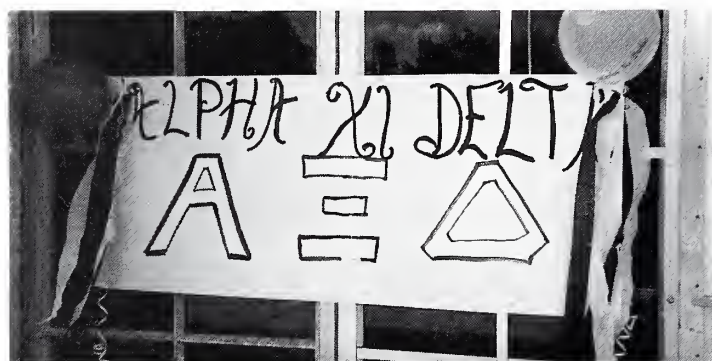 ALPHA XI DELTA
Α Ξ Δ